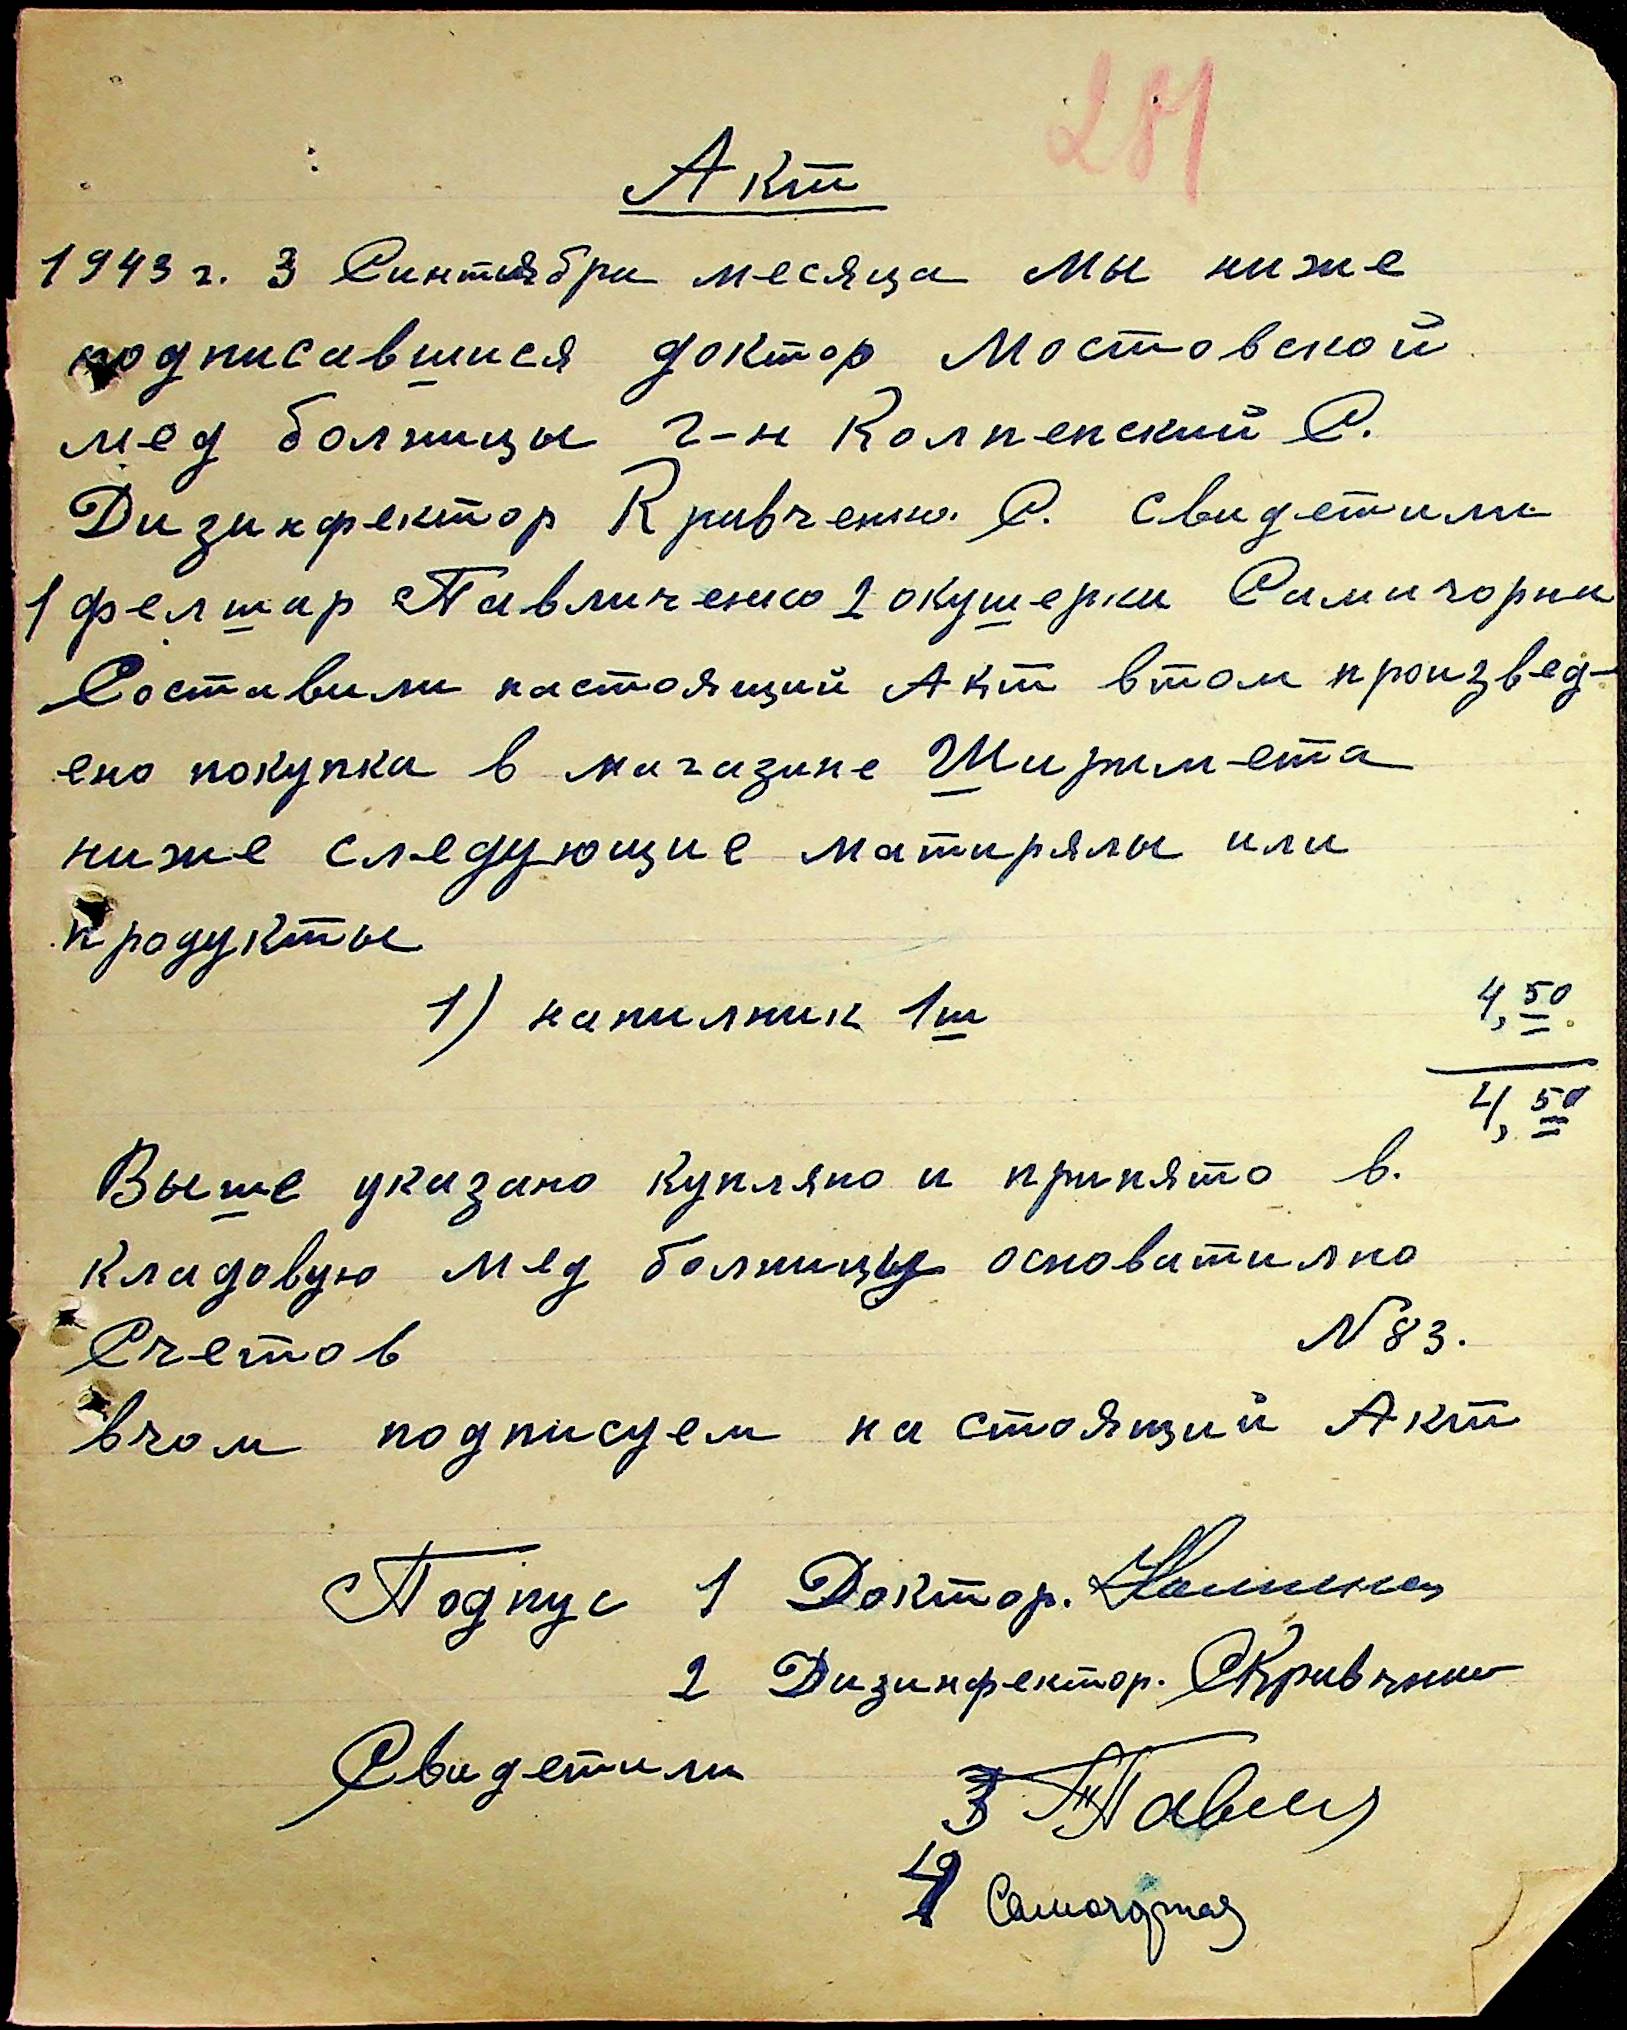 281
Акт
1943 г. 3 Синтября месяца мы ниже
подписавшися доктор Мостовской
мед болницы г-н Колпенский С.
Дизинфектор Кривченко. С. свидетили
1 фелшар Павличенко 2 окушерки Самичорни
Составили настоящий Акт втом произвед-
ено покупка в магазине Ширимета
ниже следующие матирялы или
продукты
1) напилник 1ш 4,50.
4,50
Выше указано купляно и принято в.
кладовую мед болницы основатилно
Счетов N 83.
вчом подписуем на стоящий Акт
Подпус 1 Доктор.
2 Дизинфектор. СКривченко
Свидетили 3 Павлич
4 Самочорная